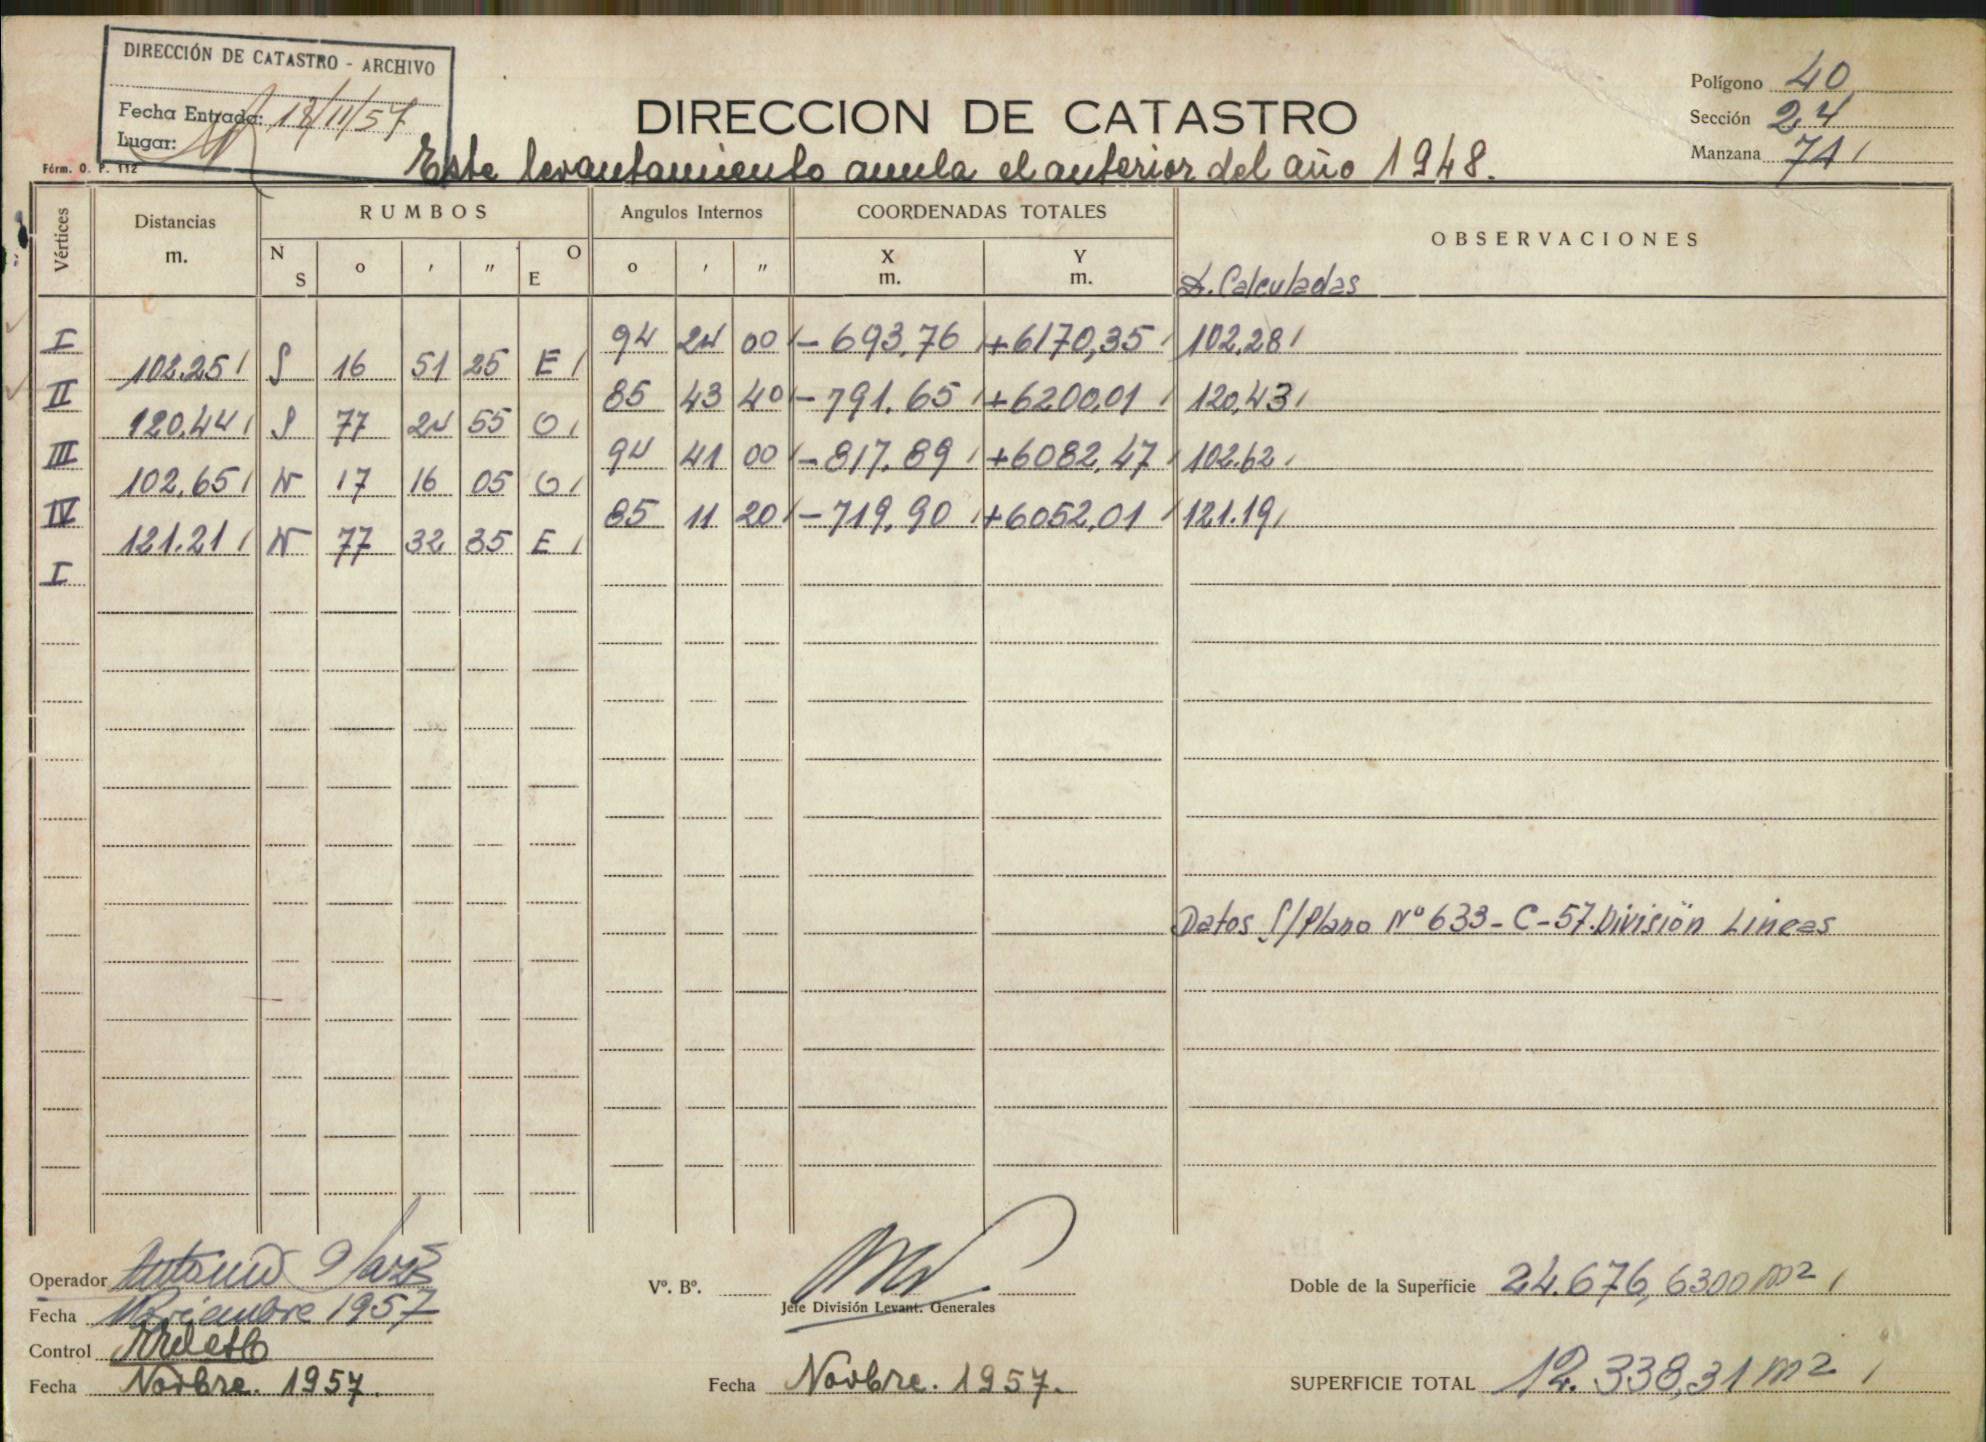 DIRECCIÓN DE CATASTRO - ARCHIVO
Fecha Entrada: 18/11/57
Lugar:
Fórm. O. P. 112
DIRECCION DE CATASTRO
Este levantamiento anula el anterior del año 1948.
Polígono 40
Sección 24
Manzana 74
Vértices Distancias m. RUMBOS Angulos Internos COORDENADAS TOTALES OBSERVACIONES
N S o ' " O E o ' " X m. Y m. D. Calculadas
I 94 24 00 -693,76 +6170,35 102.28
102.25 S 16 51 25 E
II 85 43 40 -791.65 +6200,01 120,43
120,44 S 77 24 55 O
III 94 41 00 -817.89 +6082,47 102.62
102,65 N 17 16 05 O
IV 85 11 20 -719,90 +6052,01 121.19
121.21 N 77 32 35 E
I
Datos S/Plano Nº 633-C-57. División Lineas
Operador Antonio
Fecha Noviembre 1957
Control
Fecha Novbre. 1957.
Vº. Bº.
Jefe División Levant. Generales
Fecha Novbre. 1957.
Doble de la Superficie 24.676,6300 m2
SUPERFICIE TOTAL 12.338,31 m2